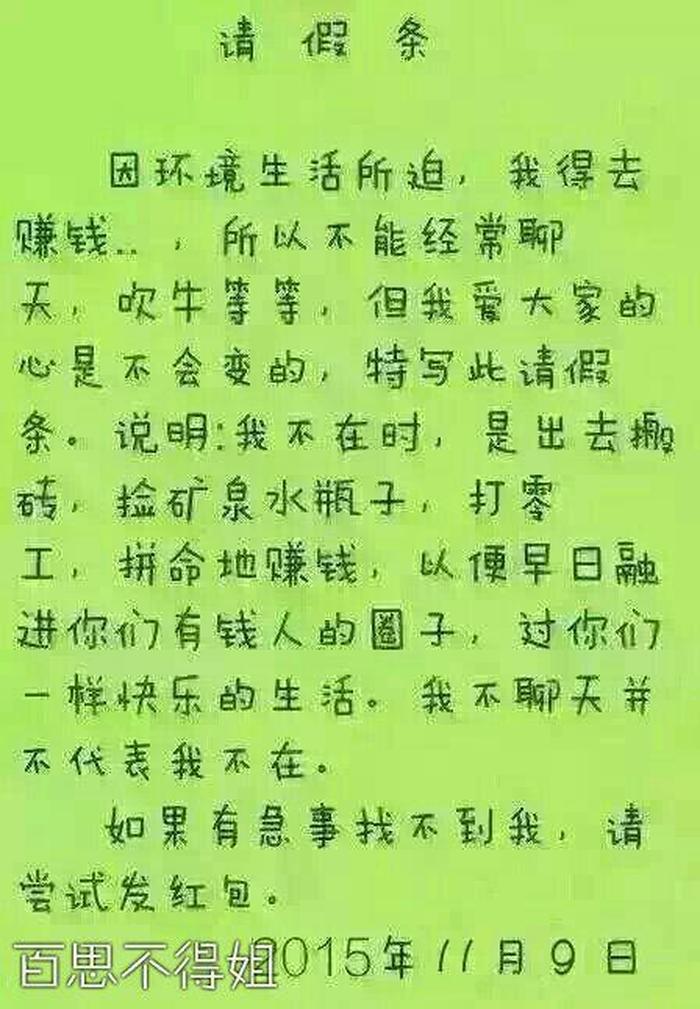 请假条
因环境生活所迫，我得去
赚钱..，所以不能经常聊
天，吹牛等等，但我爱大家的
心是不会变的，特写此请假
条。说明:我不在时，是出去搬
砖，捡矿泉水瓶子，打零
工，拼命地赚钱，以便早日融
进你们有钱人的圈子，过你们
一样快乐的生活。我不聊天并
不代表我不在。
如果有急事找不到我，请
尝试发红包。
2015年11月9日
百思不得姐